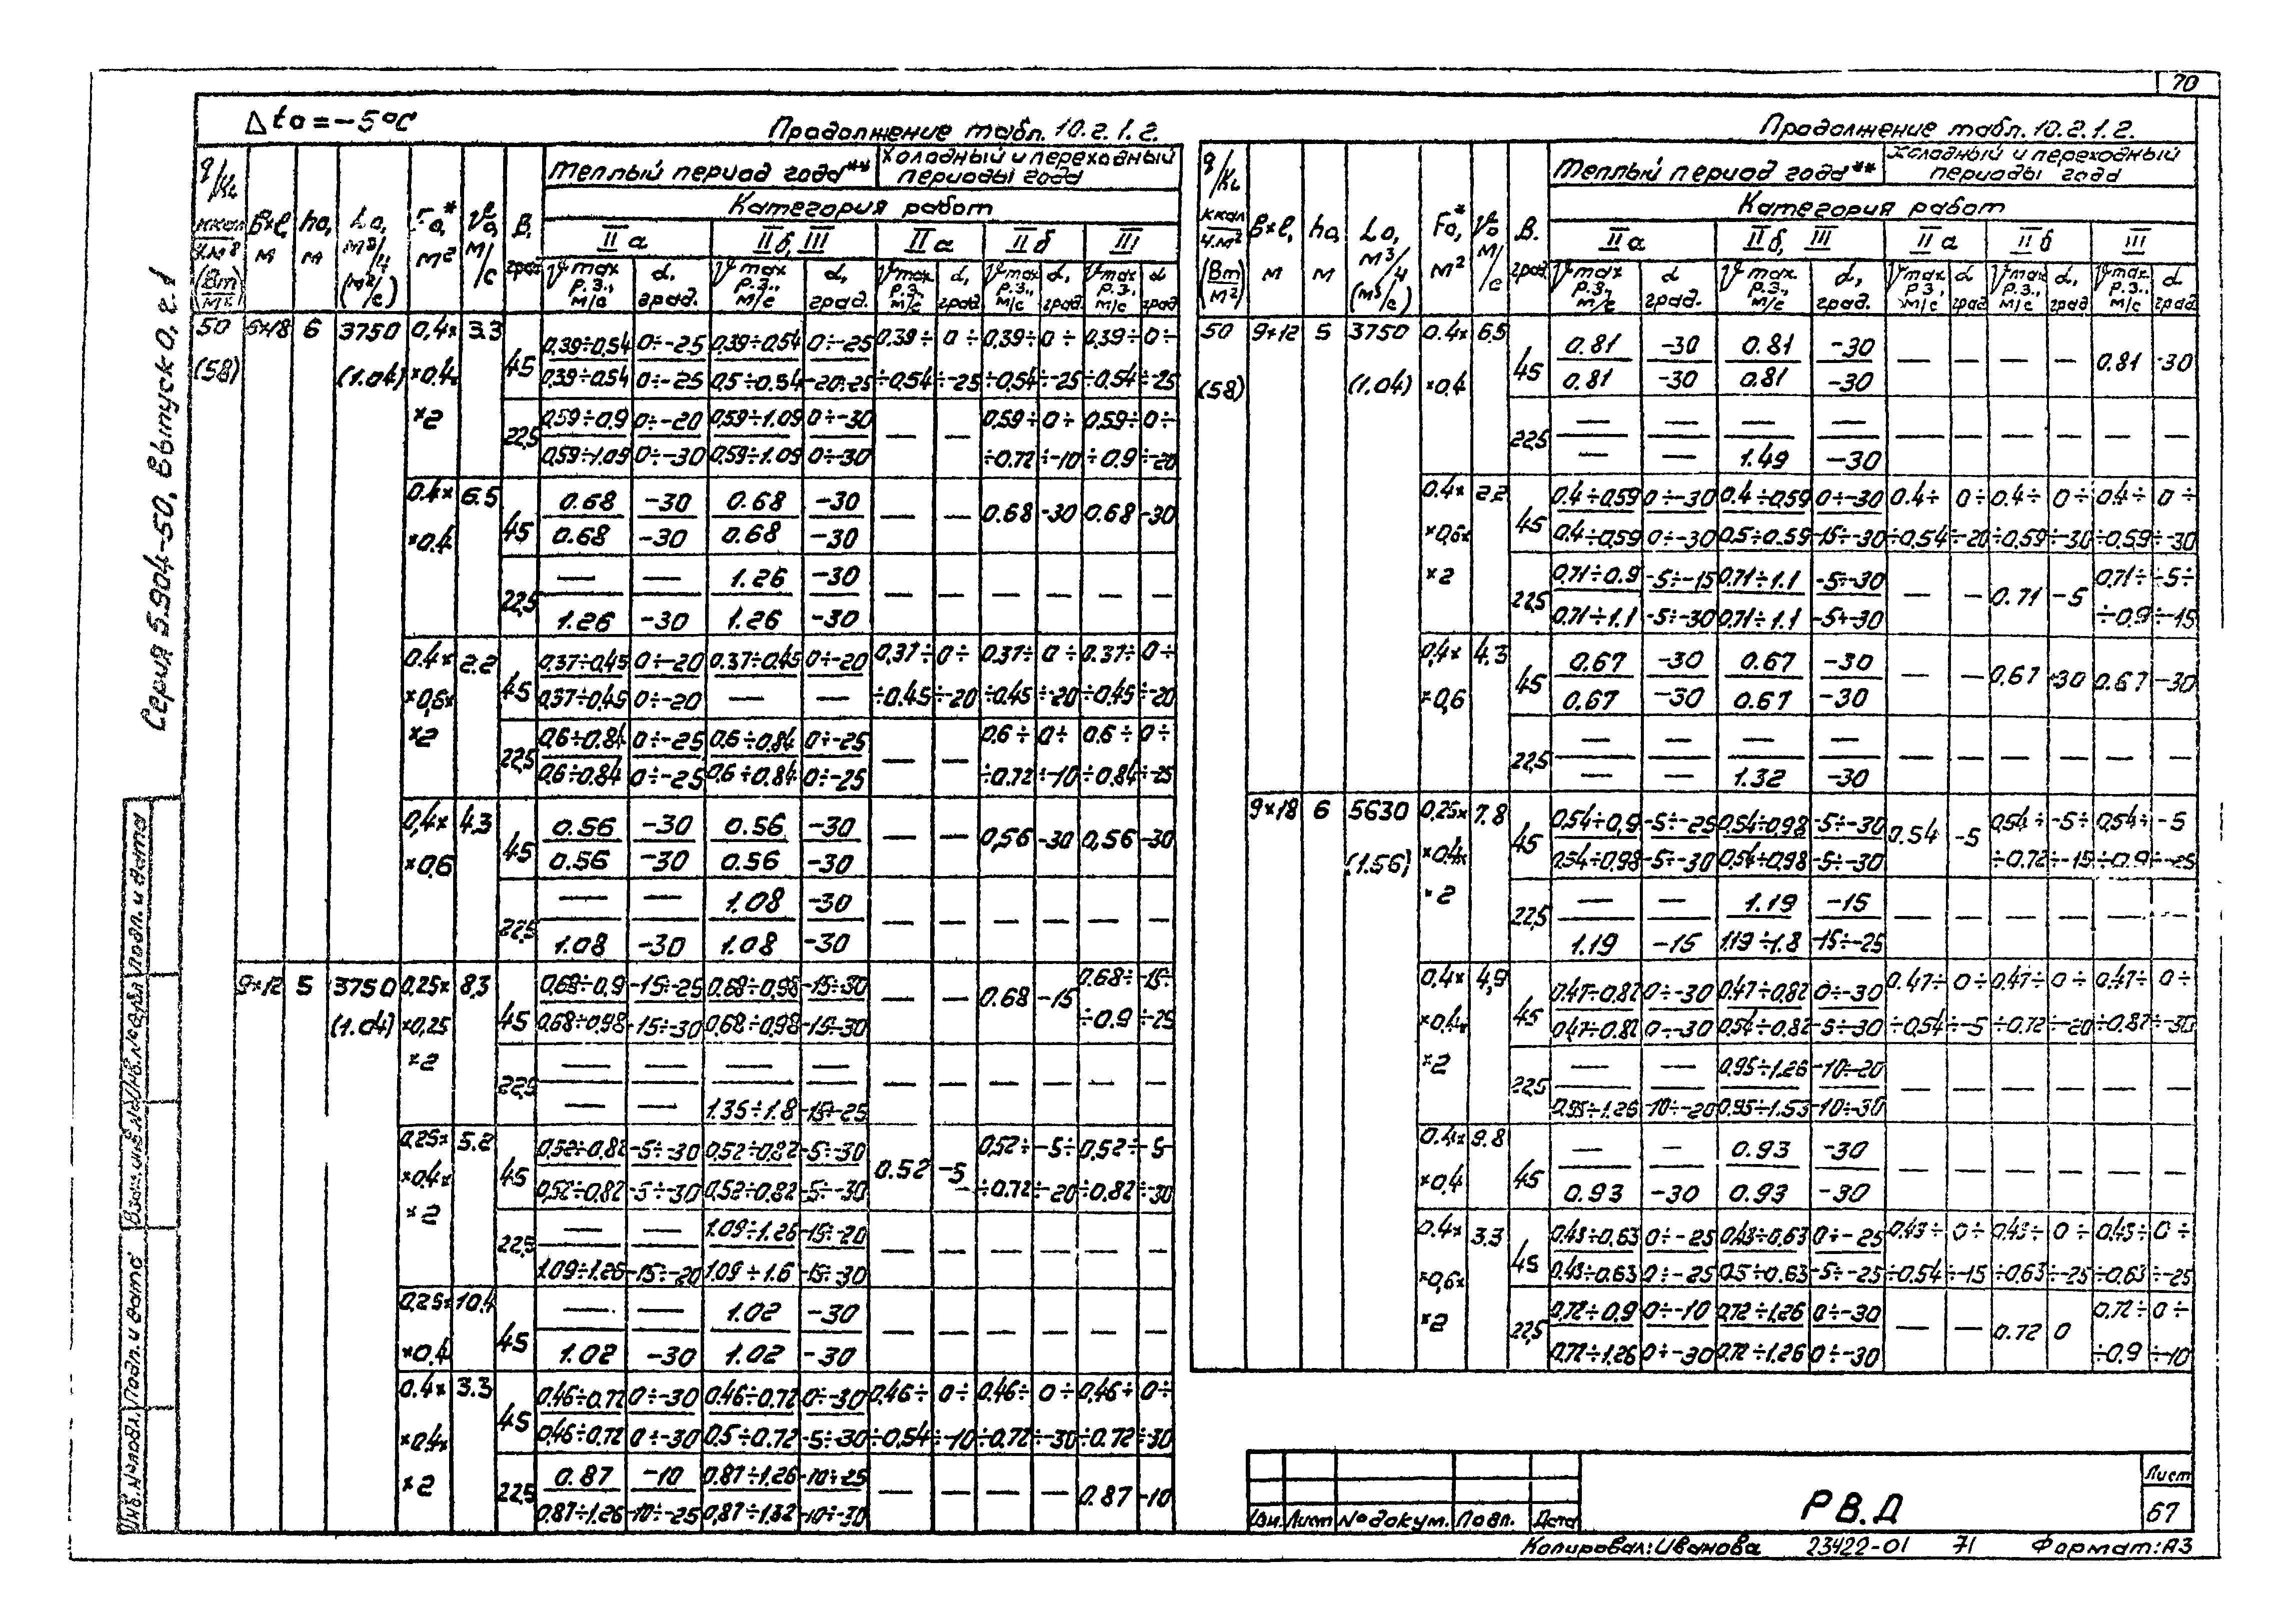 70
Δto=-5°C
Продолжение табл. 10.2.1.2.
q/KL ккал/ч.м² (Вт/м²) | B×l, м | ho, м | Lo, м³/ч (м³/с) | Fo*, м² | Vo, м/с | β, град. | Теплый период года** | Холодный и переходный периоды года
Категория работ
IIа | IIб, III | IIа | IIб | III
Vmax р.з., м/с | α, град. | Vmax р.з., м/с | α, град. | Vmax р.з., м/с | α, град. | Vmax р.з., м/с | α, град. | Vmax р.з., м/с | α, град.
50 (58) | 6×18 | 6 | 3750 (1.04) | 0,4××0.4××2 | 3.3 | 45 | 0,39÷0,54 | 0÷-25 | 0,39÷0,54 | 0÷-25 | 0,39÷÷0,54 | 0÷÷-25 | 0,39÷÷0,54 | 0÷÷-25 | 0,39÷÷0,54 | 0÷÷-25
0,39÷0,54 | 0÷-25 | 0,5÷0.54 | -20÷25
22,5 | 0,59÷0.9 | 0÷-20 | 0,59÷1.09 | 0÷-30 | — | — | 0,59÷÷0.72 | 0÷÷-10 | 0,59÷÷0.9 | 0÷÷-20
0,59÷1.09 | 0÷-30 | 0,59÷1.09 | 0÷-30
0.4××0.4 | 6.5 | 45 | 0.68 | -30 | 0.68 | -30 | — | — | 0.68 | -30 | 0.68 | -30
0.68 | -30 | 0.68 | -30
22,5 | — | — | 1.26 | -30 | — | — | — | — | — | —
1.26 | -30 | 1.26 | -30
0.4××0,6××2 | 2.2 | 45 | 0,37÷0,45 | 0÷-20 | 0.37÷0,45 | 0÷-20 | 0,37÷÷0.45 | 0÷÷-20 | 0.37÷÷0,45 | 0÷÷-20 | 0.37÷÷0,45 | 0÷÷-20
0,37÷0,45 | 0÷-20 | — | —
22,5 | 0,6÷0.84 | 0÷-25 | 0,6÷0,84 | 0÷-25 | — | — | 0,6÷÷0.72 | 0÷÷-10 | 0.6÷÷0,84 | 0÷÷-25
0,6÷0.84 | 0÷-25 | 0,6÷0,84 | 0÷-25
0,4××0,6 | 4.3 | 45 | 0.56 | -30 | 0.56 | -30 | — | — | 0,56 | -30 | 0,56 | -30
0.56 | -30 | 0.56 | -30
22,5 | — | — | 1.08 | -30 | — | — | — | — | — | —
1.08 | -30 | 1.08 | -30
9×12 | 5 | 3750 (1.04) | 0,25××0,25×2 | 8,3 | 45 | 0,68÷0,9 | -15÷-25 | 0,68÷0,98 | -15÷-30 | — | — | 0.68 | -15 | 0.68÷÷0.9 | -15÷÷-25
0,68÷0,98 | -15÷-30 | 0,68÷0,98 | -15÷-30
22,5 | — | — | — | — | — | — | — | — | — | —
— | — | 1.35÷1.8 | -15÷-25
0,25××0,4××2 | 5.2 | 45 | 0,52÷0,82 | -5÷-30 | 0,52÷0,82 | -5÷-30 | 0.52 | -5 | 0,52÷÷0.72 | -5÷÷-20 | 0,52÷÷0,82 | -5÷÷-30
0,52÷0,82 | -5÷-30 | 0,52÷0.82 | -5÷-30
22,5 | — | — | 1.09÷1.26 | -15÷-20 | — | — | — | — | — | —
1.09÷1.26 | -15÷-20 | 1.09÷1.6 | -15÷-30
0,25××0,4 | 10.4 | 45 | — | — | 1.02 | -30 | — | — | — | — | — | —
1.02 | -30 | 1.02 | -30
0.4××0.4××2 | 3.3 | 45 | 0,46÷0.72 | 0÷-30 | 0.46÷0.72 | 0÷-30 | 0,46÷÷0,54 | 0÷÷-10 | 0.46÷÷0.72 | 0÷÷-30 | 0,46÷÷0.72 | 0÷÷-30
0,46÷0.72 | 0÷-30 | 0.5÷0.72 | -5÷-30
22,5 | 0.87 | -10 | 0.87÷1.26 | -10÷-25 | — | — | — | — | 0.87 | -10
0.87÷1.26 | -10÷-25 | 0,87÷1.32 | -10÷-30
Продолжение табл. 10.2.1.2.
q/KL ккал/ч.м² (Вт/м²) | B×l, м | ho, м | Lo, м³/ч (м³/с) | Fo*, м² | Vo, м/с | β, град. | Теплый период года** | Холодный и переходный периоды года
Категория работ
IIа | IIб, III | IIа | IIб | III
Vmax р.з., м/с | α град. | Vmax р.з., м/с | α, град. | Vmax р.з., м/с | α град | Vmax р.з., м/с | α, град | Vmax р.з., м/с | α град
50 (58) | 9×12 | 5 | 3750 (1.04) | 0.4××0.4 | 6.5 | 45 | 0.81 | -30 | 0.81 | -30 | — | — | — | — | 0.81 | -30
0.81 | -30 | 0.81 | -30
22,5 | — | — | — | — | — | — | — | — | — | —
— | — | 1.49 | -30
0.4××0,6××2 | 2.2 | 45 | 0.4÷0,59 | 0÷-30 | 0.4÷0,59 | 0÷-30 | 0.4÷÷0.54 | 0÷÷-20 | 0.4÷÷0,59 | 0÷÷-30 | 0.4÷÷0,59 | 0÷÷-30
0.4÷0,59 | 0÷-30 | 0.5÷0.59 | -15÷-30
22,5 | 0,71÷0.9 | -5÷-15 | 0,71÷1.1 | -5÷-30 | — | — | 0.71 | -5 | 0,71÷÷0,9 | -5÷÷-15
0,71÷1.1 | -5÷-30 | 0,71÷1.1 | -5÷-30
0,4××0,6 | 4.3 | 45 | 0.67 | -30 | 0.67 | -30 | — | — | 0,67 | -30 | 0.67 | -30
0.67 | -30 | 0.67 | -30
22,5 | — | — | — | — | — | — | — | — | — | —
— | — | 1.32 | -30
9×18 | 6 | 5630 (1.56) | 0,25××0,4××2 | 7.8 | 45 | 0,54÷0,9 | -5÷-25 | 0,54÷0,98 | -5÷-30 | 0.54 | -5 | 0,54÷÷0.72 | -5÷÷-15 | 0,54÷÷0.9 | -5÷-25
0,54÷0,98 | -5÷-30 | 0,54÷0,98 | -5÷-30
22,5 | — | — | 1.19 | -15 | — | — | — | — | — | —
1.19 | -15 | 1.19÷1.8 | -15÷-25
0.4××0,4××2 | 4,9 | 45 | 0,47÷0,82 | 0÷-30 | 0,47÷0,82 | 0÷-30 | 0.47÷÷0,54 | 0÷÷-5 | 0,47÷÷0.72 | 0÷÷-20 | 0,47÷÷0,82 | 0÷÷-30
0,47÷0.82 | 0÷-30 | 0,54÷0,82 | -5÷-30
22,5 | — | — | 0,95÷1,26 | -10÷-20 | — | — | — | — | — | —
0,95÷1.26 | -10÷-20 | 0.95÷1.53 | -10÷-30
0.4××0,4 | 9.8 | 45 | — | — | 0.93 | -30 | — | — | — | — | — | —
0.93 | -30 | 0.93 | -30
0.4××0,6××2 | 3.3 | 45 | 0,43÷0,63 | 0÷-25 | 0,43÷0,63 | 0÷-25 | 0,43÷÷0,54 | 0÷÷-15 | 0,43÷÷0,63 | 0÷÷-25 | 0,43÷÷0,63 | 0÷÷-25
0,43÷0.63 | 0÷-25 | 0.5÷0.63 | -5÷-25
22,5 | 0,72÷0.9 | 0÷-10 | 0,72÷1,26 | 0÷-30 | — | — | 0.72 | 0 | 0.72÷÷0.9 | 0÷÷-10
0,72÷1.26 | 0÷-30 | 0,72÷1.26 | 0÷-30
Серия 5.904-50, выпуск 0, ч.1
Инв.№ подл. | Подп. и дата | Взам.инв.№ | Инв.№ дубл | Подп. и дата
Изм. | Лист | № докум. | Подп. | Дата
РВ.Д
Лист
67
Копировал: Иванова 23422-01 71 Формат: А3